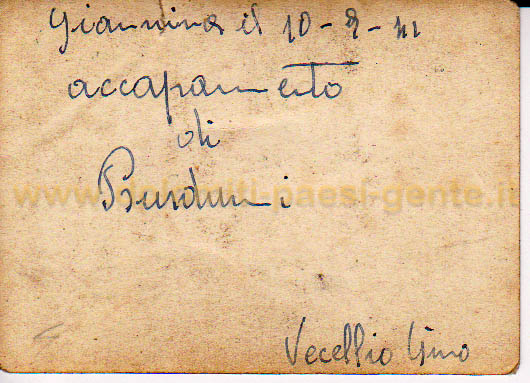 Giannina il 10-8-41
accapamento
di
Burduni
www.dolomiti-paesi-gente.it
Vecellio Gino